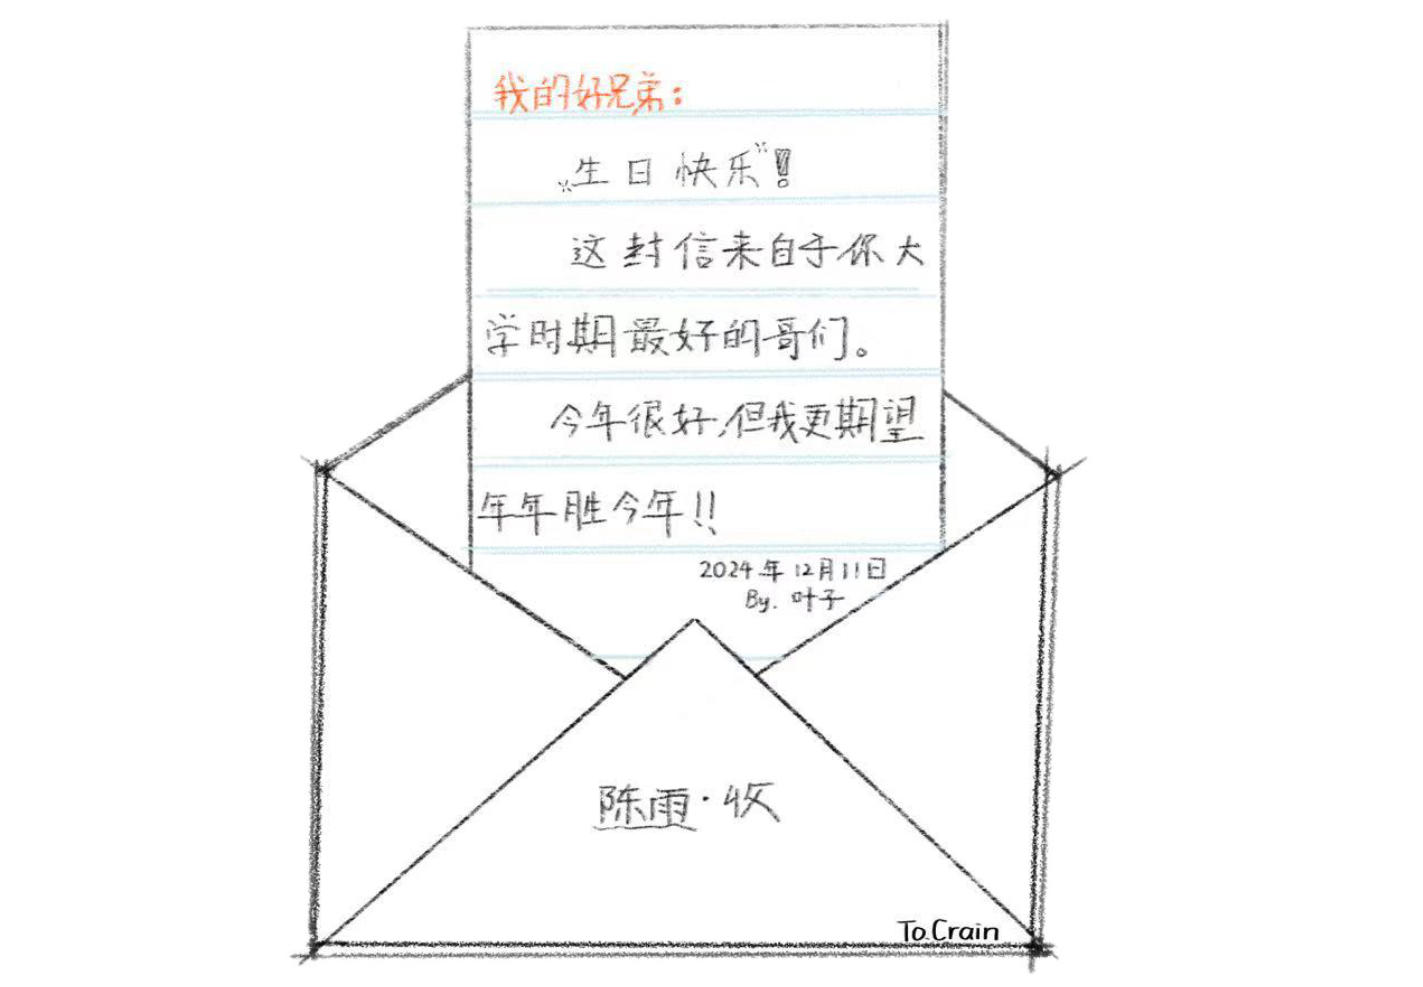 我的好兄弟：
生日快乐！
这封信来自于你大
学时期最好的哥们。
今年很好，但我更期望
年年胜今年！！
2024年12月11日
By. 叶子
陈雨·收
To.Crain